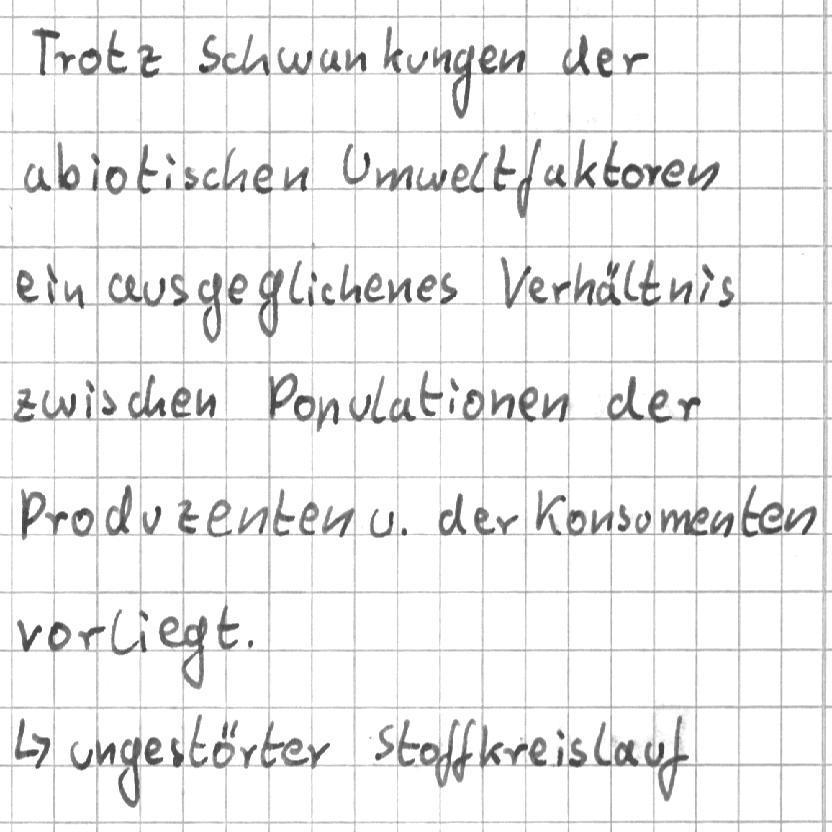 Trotz Schwankungen der
abiotischen Umweltfaktoren
ein ausgeglichenes Verhältnis
zwischen Populationen der
Produzenten u. der Konsumenten
vorliegt.
↳ ungestörter Stoffkreislauf